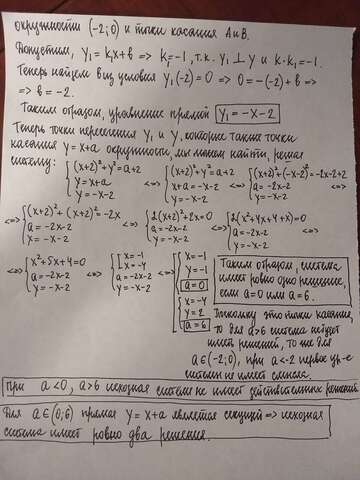 окружности (-2;0) и точки касания А и В.
Допустим, y₁ = k₁x+b => k₁=-1, т.к. y₁ ⊥ y и k·k₁=-1.
Теперь найдем b из условия y₁(-2)=0 => 0=-(-2)+b =>
=> b=-2.
Таким образом, уравнение прямой y₁=-x-2
Теперь точки пересечения y₁ и y, которые также точки
касания y=x+a окружности, мы можем найти, решая
систему: { (x+2)²+y²=a+2 { (x+2)²+y²=a+2 { (x+2)²+(-x-2)²=-2x-2+2
y=x+a <=> x+a=-x-2 <=> a=-2x-2 <=>
y=-x-2 y=-x-2 y=-x-2
<=> { (x+2)²+(x+2)²=-2x { 2(x+2)²+2x=0 { 2(x²+4x+4+x)=0
a=-2x-2 <=> a=-2x-2 <=> a=-2x-2 <=>
y=-x-2 y=-x-2 y=-x-2
<=> { x²+5x+4=0 { [ x=-1 [ { x=-1
a=-2x-2 <=> x=-4 <=> y=-1
y=-x-2 a=-2x-2 a=0
y=-x-2 { x=-4
y=2
a=6
Таким образом, система
имеет ровно одно решение,
если a=0 или a=6.
Поскольку это точки касания,
то для a>6 система не будет
иметь решений, то же для
a∈(-2;0), при a<-2 первое ур-е
системы не имеет смысла.
При a<0, a>6 исходная система не имеет действительных решений
Для a∈(0;6) прямая y=x+a является секущей => исходная
система имеет ровно два решения.